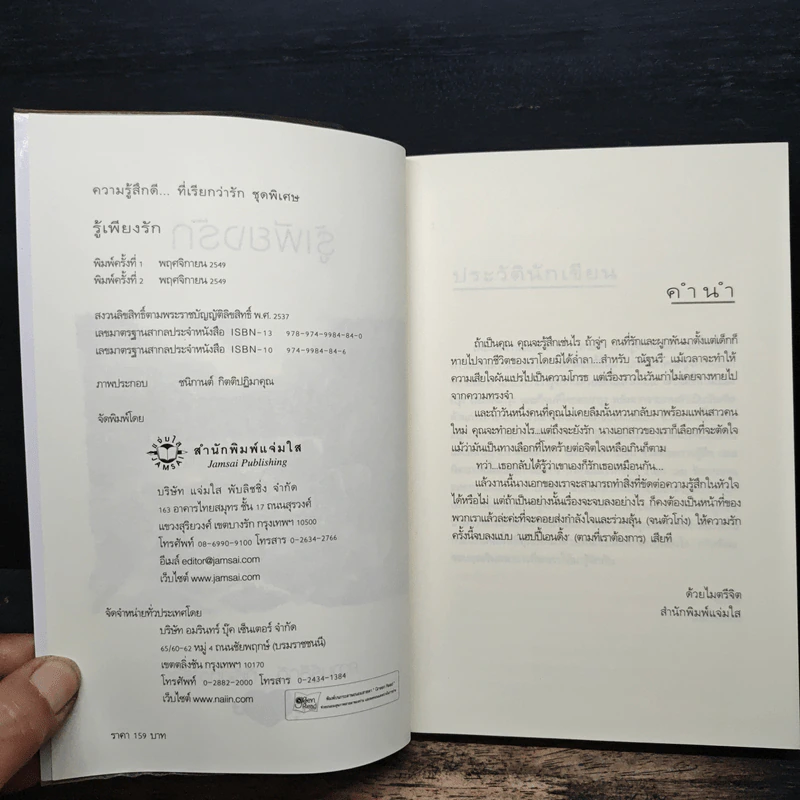 ความรู้สึกดี... ที่เรียกว่ารัก ชุดพิเศษ
รู้เพียงรัก
พิมพ์ครั้งที่ 1 พฤศจิกายน 2549
พิมพ์ครั้งที่ 2 พฤศจิกายน 2549
สงวนลิขสิทธิ์ตามพระราชบัญญัติลิขสิทธิ์ พ.ศ. 2537
เลขมาตรฐานสากลประจำหนังสือ ISBN-13 978-974-9984-84-0
เลขมาตรฐานสากลประจำหนังสือ ISBN-10 974-9984-84-6
ภาพประกอบ ชนิกานต์ กิตติปฎิมาคุณ
จัดพิมพ์โดย
แจ่มใส
JAMSAI
สำนักพิมพ์แจ่มใส
Jamsai Publishing
บริษัท แจ่มใส พับลิชชิ่ง จำกัด
163 อาคารไทยสมุทร ชั้น 17 ถนนสุรวงศ์
แขวงสุริยวงศ์ เขตบางรัก กรุงเทพฯ 10500
โทรศัพท์ 08-6990-9100 โทรสาร 0-2634-2766
อีเมล์ editor@jamsai.com
เว็บไซต์ www.jamsai.com
จัดจำหน่ายทั่วประเทศโดย
บริษัท อมรินทร์ บุ๊ค เซ็นเตอร์ จำกัด
65/60-62 หมู่ 4 ถนนชัยพฤกษ์ (บรมราชชนนี)
เขตตลิ่งชัน กรุงเทพฯ 10170
โทรศัพท์ 0-2882-2000 โทรสาร 0-2434-1384
เว็บไซต์ www.naiin.com
ราคา 159 บาท
คำนำ
ถ้าเป็นคุณ คุณจะรู้สึกเช่นไร ถ้าจู่ๆ คนที่รักและผูกพันมาตั้งแต่เด็กก็
หายไปจากชีวิตของเราโดยมิได้ล่ำลา...สำหรับ 'ณัฐนรี' แม้เวลาจะทำให้
ความเสียใจผันแปรไปเป็นความโกรธ แต่เรื่องราวในวันเก่าไม่เคยจางหายไป
จากความทรงจำ
และถ้าวันหนึ่งคนที่คุณไม่เคยลืมนั้นหวนกลับมาพร้อมแฟนสาวคน
ใหม่ คุณจะทำอย่างไร...แต่ถึงจะยังรัก นางเอกสาวของเราก็เลือกที่จะตัดใจ
แม้ว่ามันเป็นทางเลือกที่โหดร้ายต่อจิตใจเหลือเกินก็ตาม
ทว่า...เธอกลับได้รู้ว่าเขาเองก็รักเธอเหมือนกัน...
แล้วงานนี้นางเอกของเราจะสามารถทำสิ่งที่ขัดต่อความรู้สึกในหัวใจ
ได้หรือไม่ แต่ถ้าเป็นอย่างนั้นเรื่องจะจบลงอย่างไร ก็คงต้องเป็นหน้าที่ของ
พวกเราแล้วล่ะค่ะที่จะคอยส่งกำลังใจและร่วมลุ้น (จนตัวโก่ง) ให้ความรัก
ครั้งนี้จบลงแบบ 'แฮปปี้เอนดิ้ง' (ตามที่เราต้องการ) เสียที
ด้วยไมตรีจิต
สำนักพิมพ์แจ่มใส